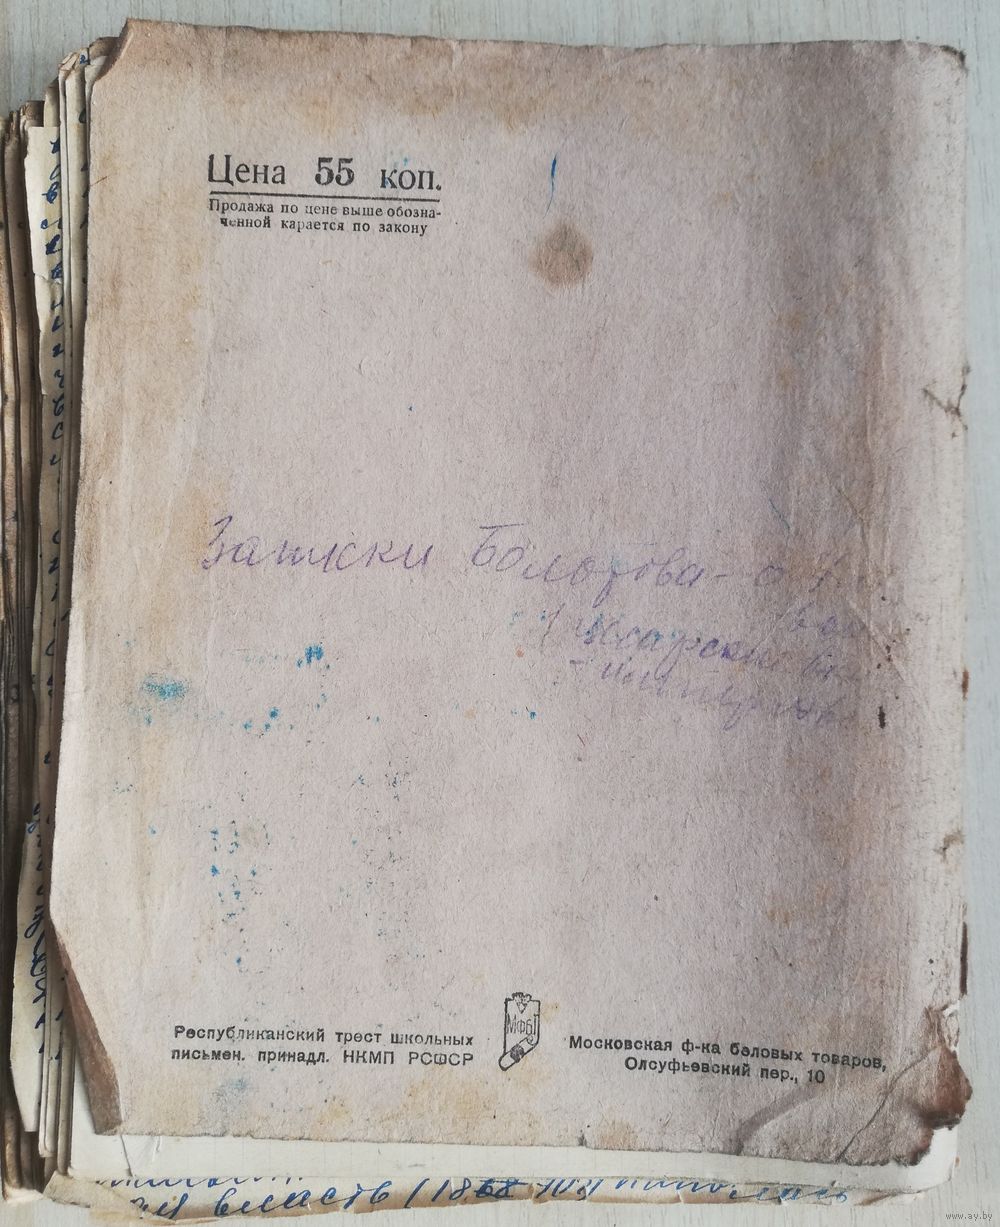 Цена 55 коп.
Продажа по цене выше обозна-
ченной карается по закону
Записки Болотова - о
Республиканский трест школьных
письмен. принадл. НКМП РСФСР
МФБТ
Московская ф-ка беловых товаров,
Олсуфьевский пер., 10
власть (1868
www.ay.by